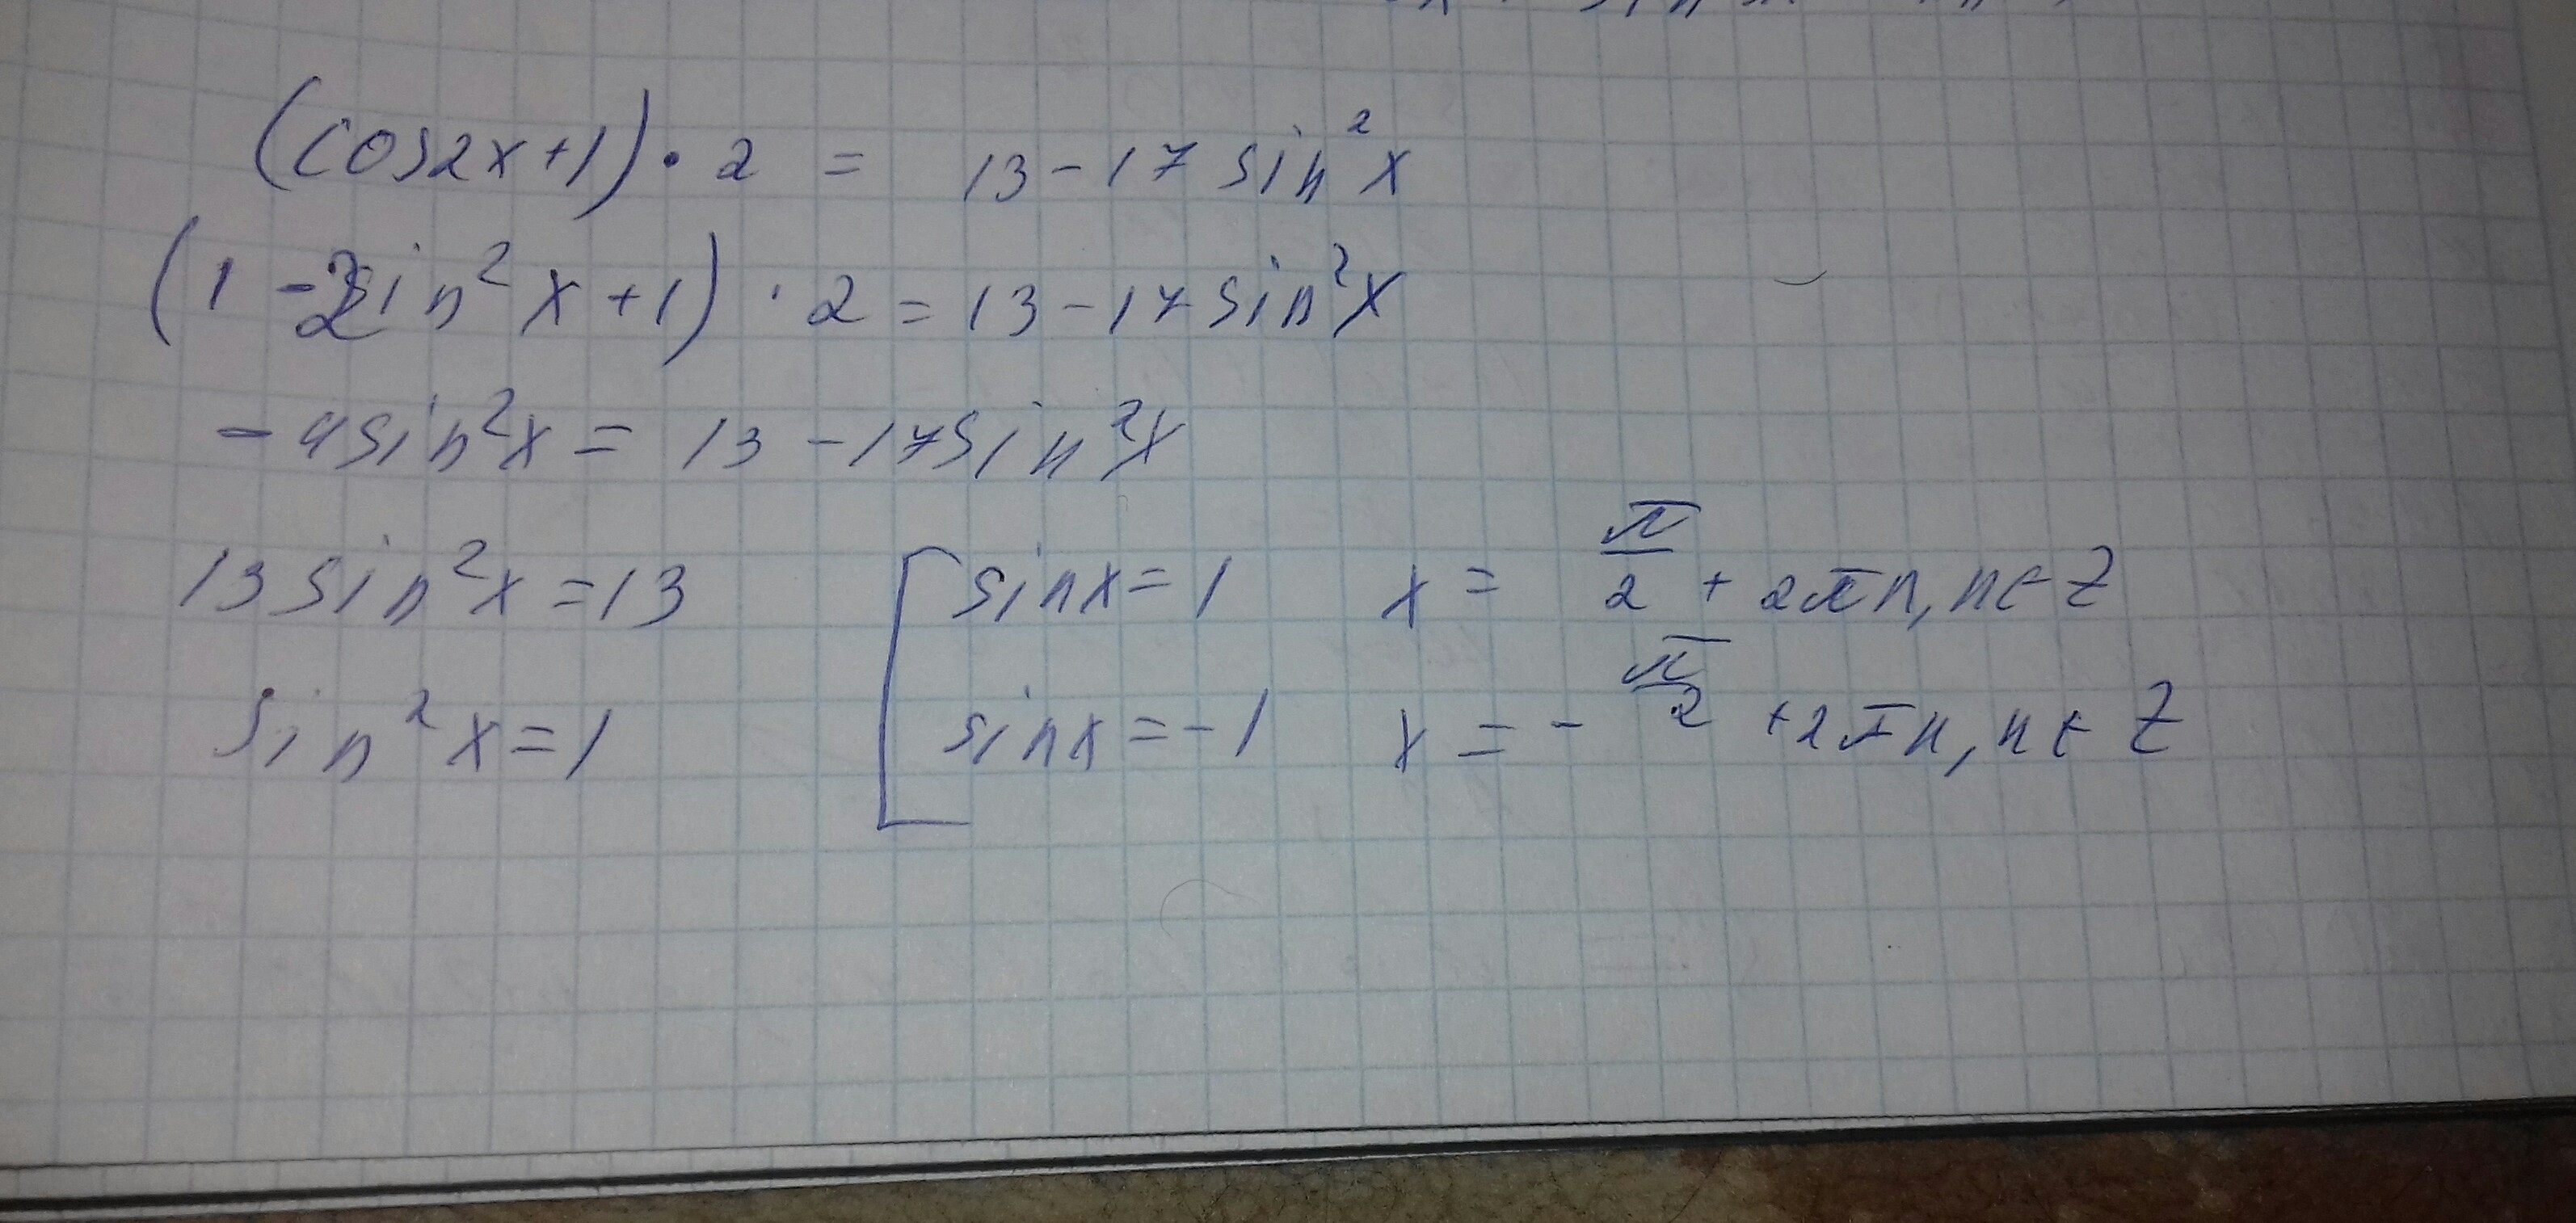 (cos2x+1)·2 = 13-17sin²x
(1-2sin²x+1)·2=13-17sin²x
-4sin²x=13-17sin²x
13sin²x=13 [sinx=1 x=π/2+2πn, n∈Z
sin²x=1 sinx=-1 x=-π/2+2πn, n∈Z